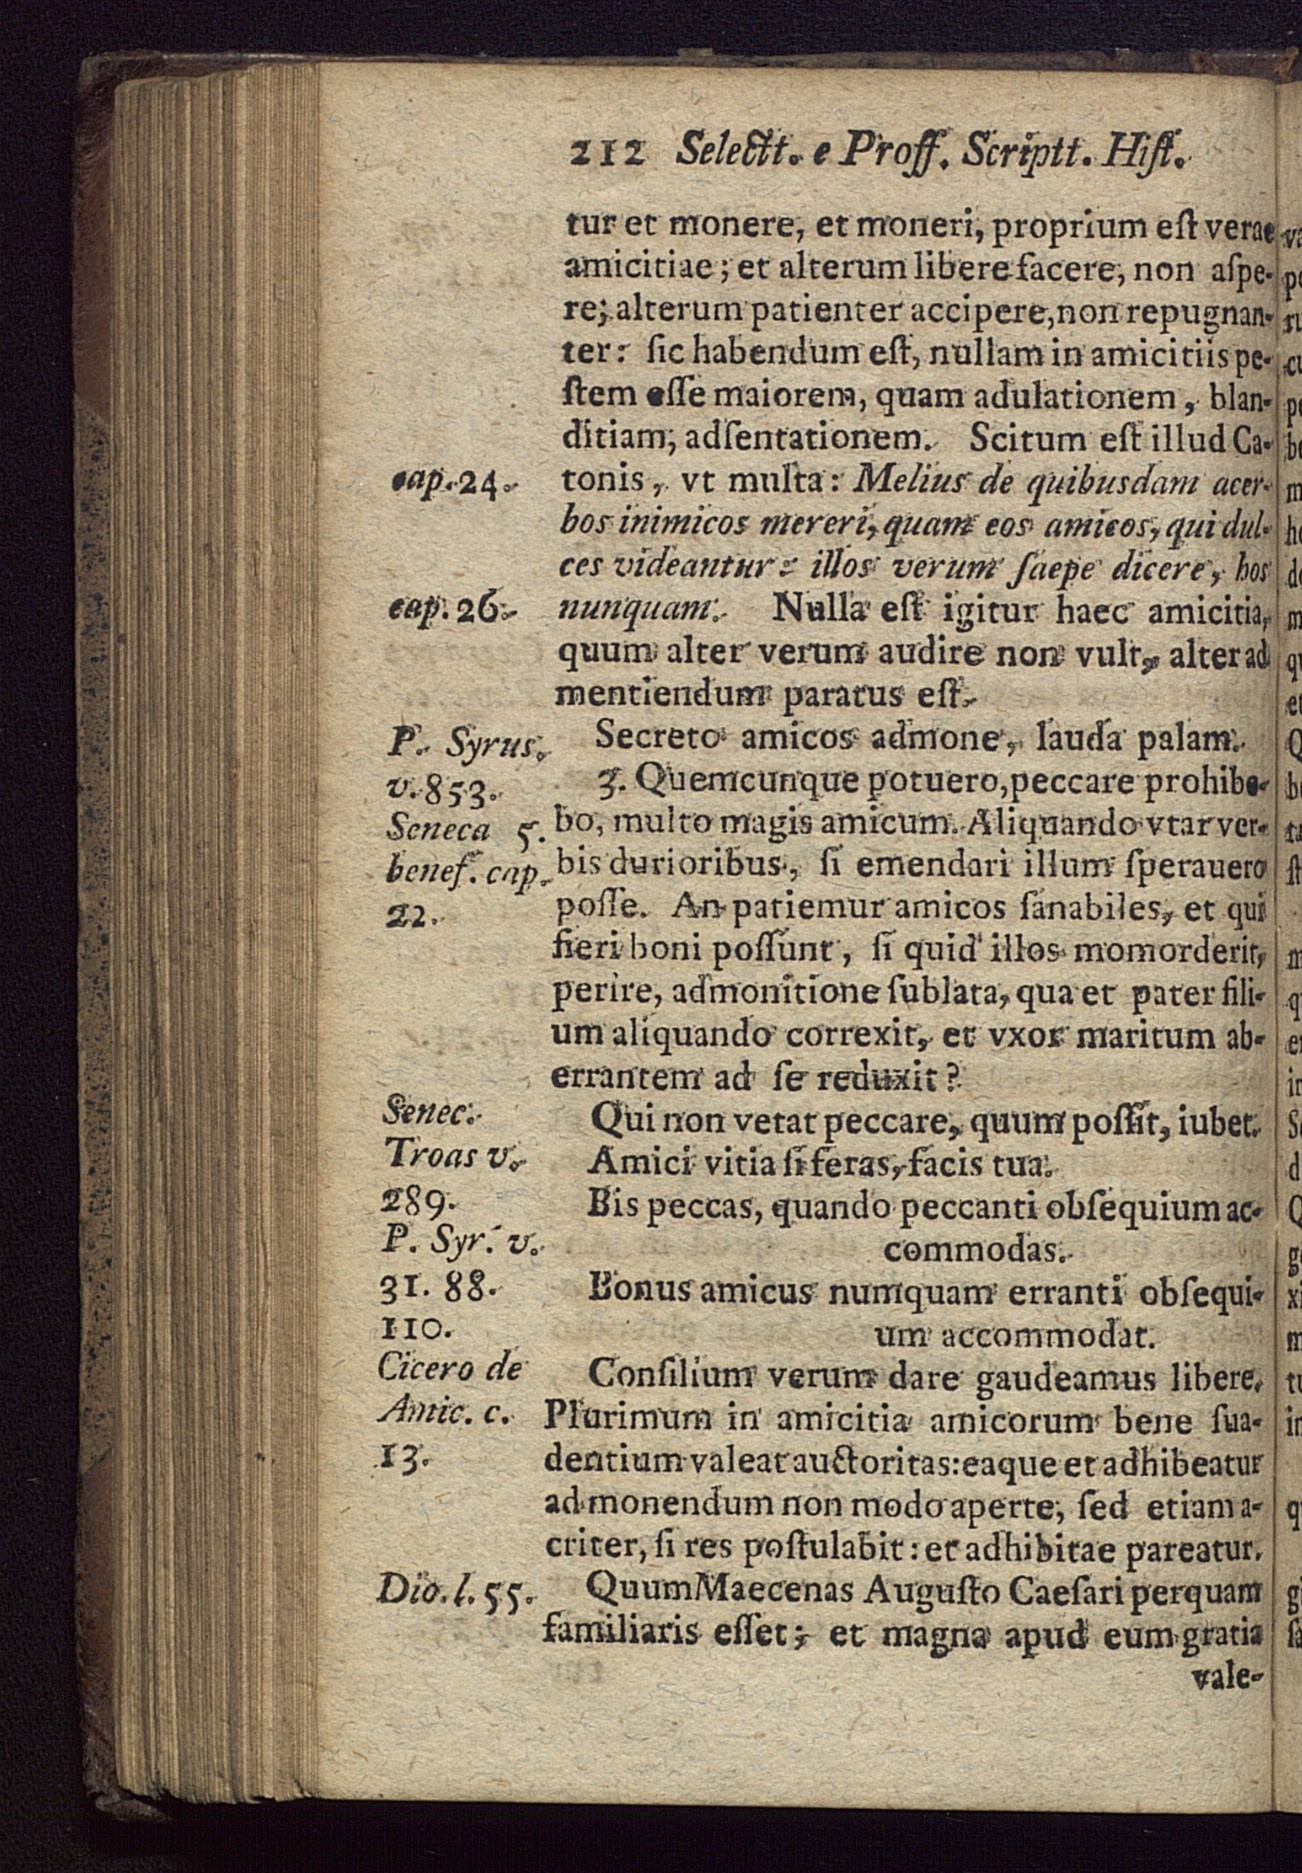 212 Selectt. e Proff. Scriptt. Hiſt.
tur et monere, et moneri, proprium eſt verae
amicitiae; et alterum libere facere, non aſpe-
re; alterum patienter accipere, non repugnan-
ter: ſic habendum eſt, nullam in amicitiis pe-
ſtem eſſe maiorem, quam adulationem, blan-
ditiam, adſentationem. Scitum eſt illud Ca-
cap. 24. tonis, vt multa: Melius de quibusdam acer-
bos inimicos mereri, quam eos amicos, qui dul-
ces videantur: illos verum ſaepe dicere, hos
cap. 26. nunquam. Nulla eſt igitur haec amicitia,
quum alter verum audire non vult, alter ad
mentiendum paratus eſt.
P. Syrus. Secreto amicos admone, lauda palam.
v. 853. 3. Quemcunque potuero, peccare prohibe-
Seneca 5. bo, multo magis amicum. Aliquando vtar ver-
benef. cap. bis durioribus, ſi emendari illum ſperauero
22. poſſe. An patiemur amicos ſanabiles, et qui
fieri boni poſſunt, ſi quid illos momorderit,
perire, admonitione ſublata, qua et pater fili-
um aliquando correxit, et vxor maritum ab-
errantem ad ſe reduxit?
Senec. Qui non vetat peccare, quum poſſit, iubet.
Troas v. Amici vitia ſi feras, facis tua.
289. Bis peccas, quando peccanti obſequium ac-
P. Syr. v. commodas.
31. 88. Bonus amicus numquam erranti obſequi-
110. um accommodat.
Cicero de Conſilium verum dare gaudeamus libere.
Amic. c. Plurimum in amicitia amicorum bene ſua-
13. dentium valeat auctoritas: eaque et adhibeatur
ad monendum non modo aperte, ſed etiam a-
criter, ſi res poſtulabit: et adhibitae pareatur.
Dio. l. 55. Quum Maecenas Auguſto Caeſari perquam
familiaris eſſet; et magna apud eum gratia
vale-